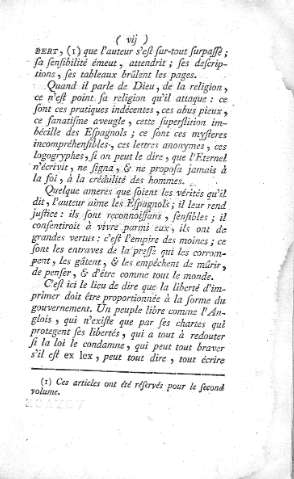 ( vij )
BERT, (1) que l'auteur s'est sur-tout surpassé ;
sa sensibilité émeut, attendrit ; ses descrip-
tions, ses tableaux brûlent les pages.
Quand il parle de Dieu, de la religion,
ce n'est point sa religion qu'il attaque : ce
sont ces pratiques indécentes, ces abus pieux,
ce fanatisme aveugle, cette superstition im-
bécille des Espagnols ; ce sont ces mysteres
incompréhensibles, ces lettres anonymes, ces
logogryphes, si on peut le dire, que l'Eternel
n'écrivit, ne signa, & ne proposa jamais à
la foi, à la crédulité des hommes.
Quelque ameres que soient les vérités qu'il
dit, l'auteur aime les Espagnols ; il leur rend
justice : ils sont reconnoissans, sensibles ; il
consentiroit à vivre parmi eux, ils ont de
grandes vertus : c'est l'empire des moines ; ce
sont les entraves de la presse qui les corrom-
pent, les gâtent, & les empêchent de mûrir,
de penser, & d'être comme tout le monde.
C'est ici le lieu de dire que la liberté d'im-
primer doit être proportionnée à la forme du
gouvernement. Un peuple libre comme l'An-
glois, qui n'existe que par ses chartes qui
protegent ses libertés, qui a tout à redouter
si la loi le condamne, qui peut tout braver
s'il est ex lex, peut tout dire, tout écrire
(1) Ces articles ont été réservés pour le second
volume.